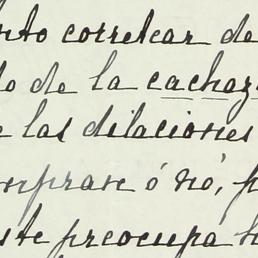 nto corretear de
do de la cachaz
e las dilaciones
mpran ó nó, p
ste preocupa h